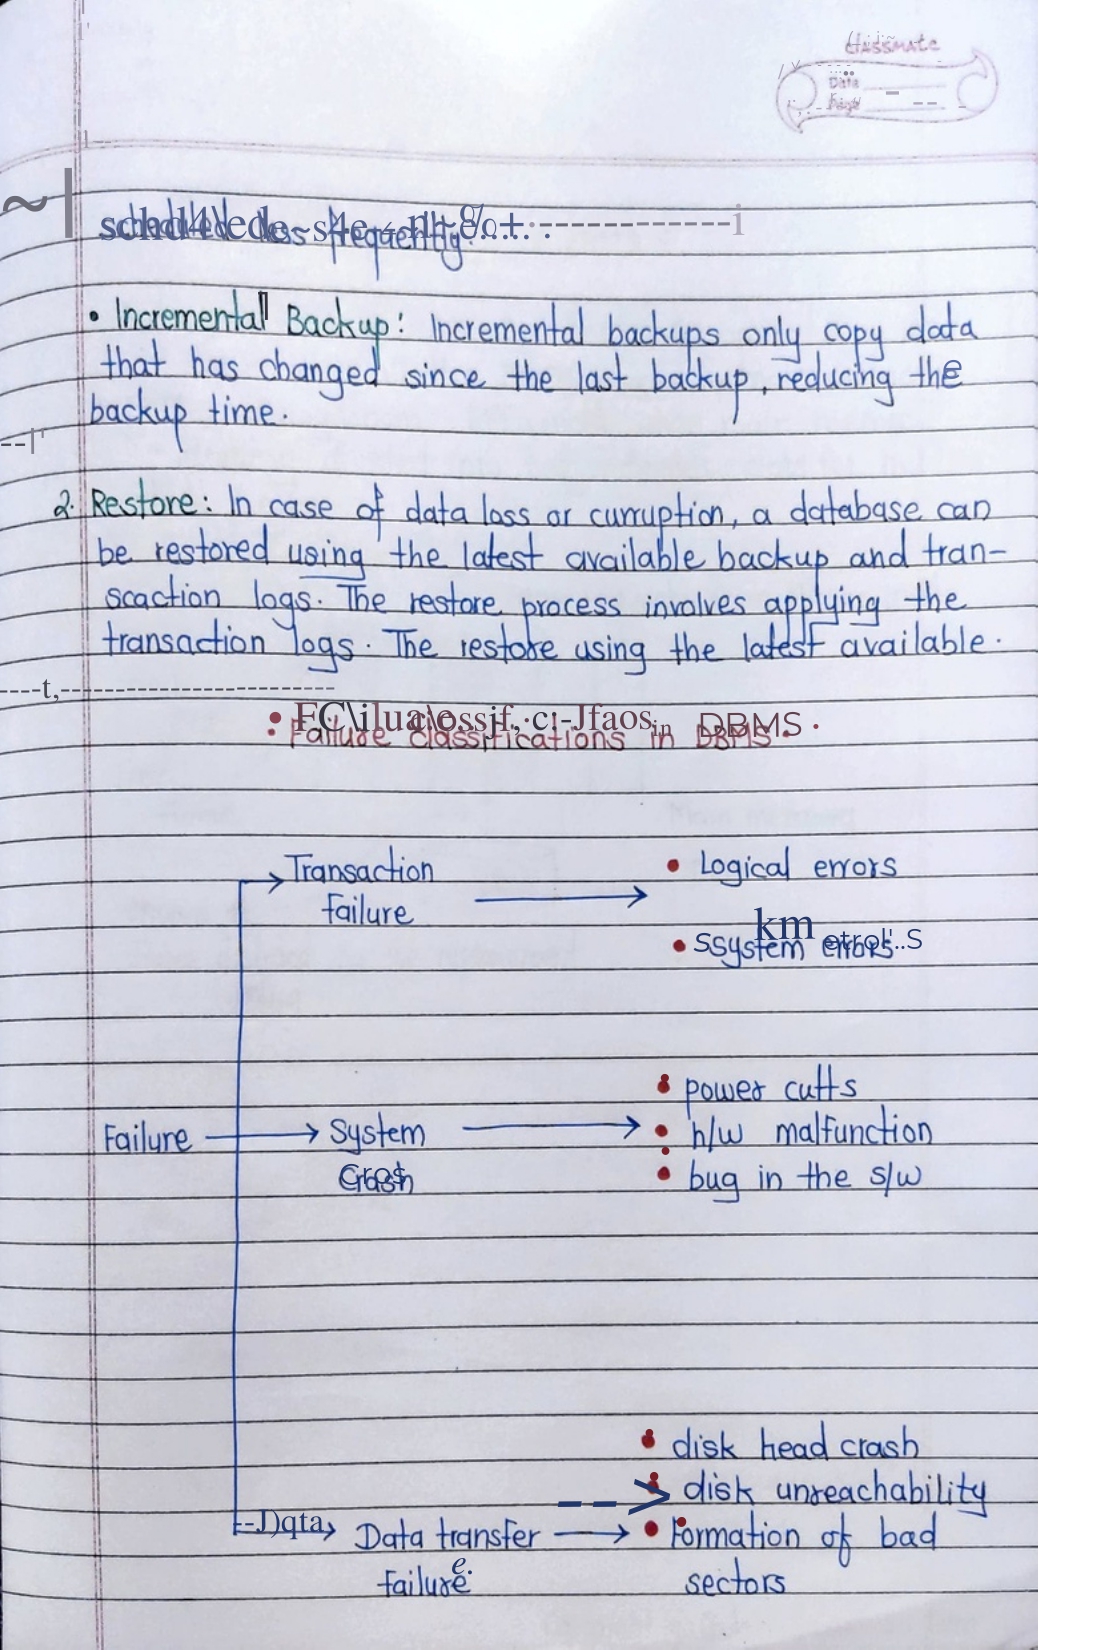 classmate
Date
Page
scheduled less frequently.
• Incremental Backup: Incremental backups only copy data
that has changed since the last backup, reducing the
backup time.
2. Restore: In case of data loss or curruption, a database can
be restored using the latest available backup and tran-
scaction logs. The restore process involves applying the
transaction logs. The restore using the latest available.
• Failure classifications in DBMS.
Transaction
failure
• Logical errors
• System errors
Failure
System
Crash
• power cutts
• h/w malfunction
• bug in the s/w
Data transfer
failure
• disk head crash
• disk unreachability
• Formation of bad
sectors